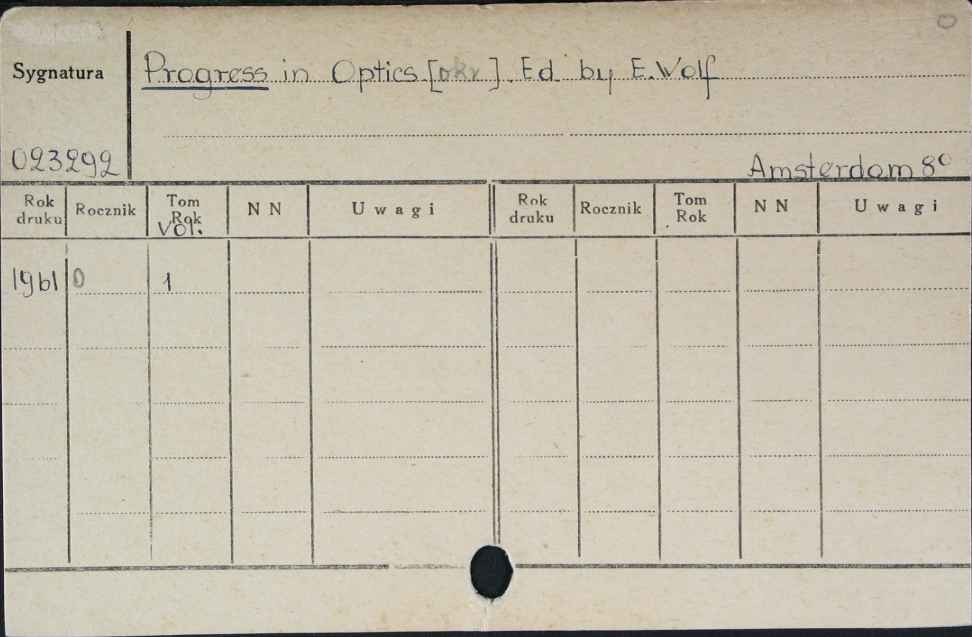 Sygnatura
Progress in Optics [okr]. Ed. by E. Wolf
023292
Amsterdam 8°
Rok druku Rocznik Tom Rok Vol. N N Uwagi Rok druku Rocznik Tom Rok N N Uwagi
1961 0 1